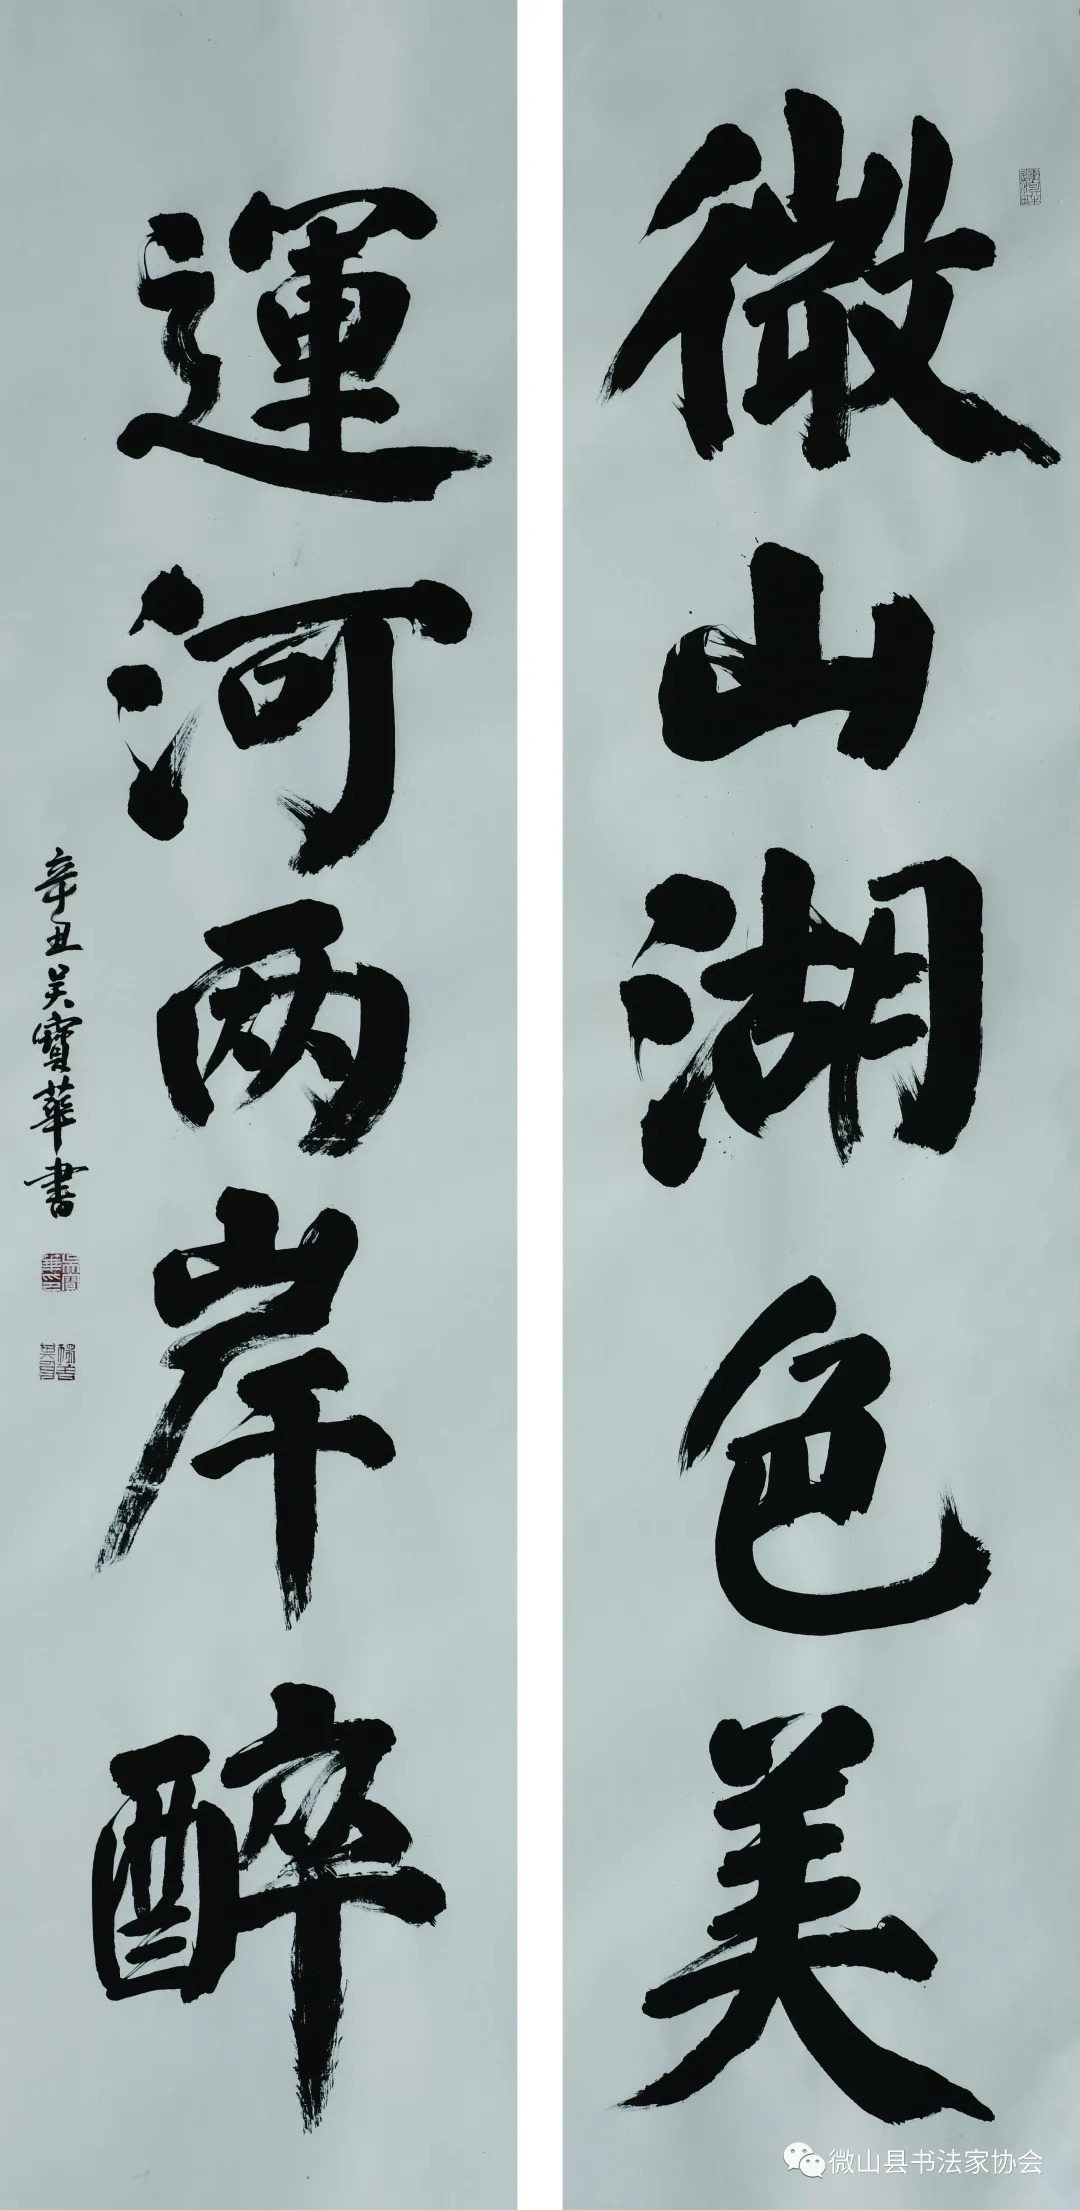 微山湖色美
運河两岸醉
辛丑吴寶華書
微山县书法家协会